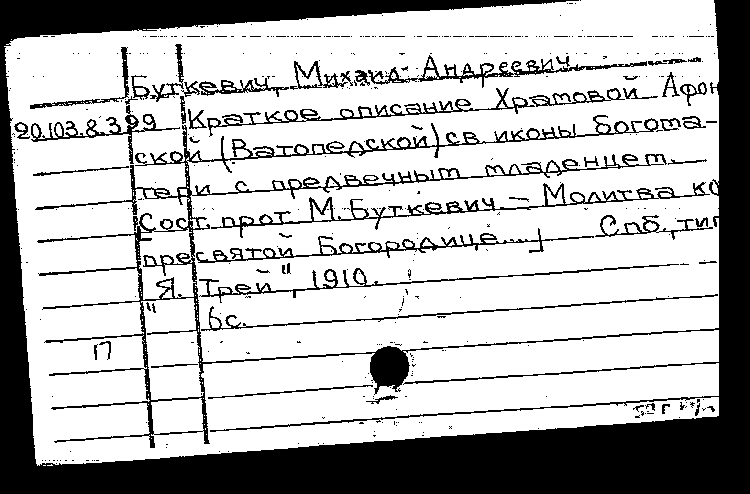 Буткевич, Михаил Андреевич.
20.103.8.399 Краткое описание Храмовой Афон
ской (Ватопедской) св. иконы богома-
тери с предвечным младенцем.
Сост. прот. М. Буткевич – Молитва ко
пресвятой Богородице....] Спб., тип
"Я. Трей", 1910.
6с.
П